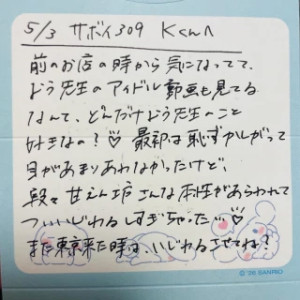 5/3 サボイ309 Kくんへ
前のお店の時から気になってて、
どう先生のアイドル動画も見てる
なんて、どんだけどう先生のこと
好きなの?♡ 最初は恥ずかしがって
目があまりあわなかったけど、
段々甘えん坊さんな本性があらわれて
ついいじわるしすぎちゃった…♡
また東京来た時は、いじわるさせてね?
©'26 SANRIO